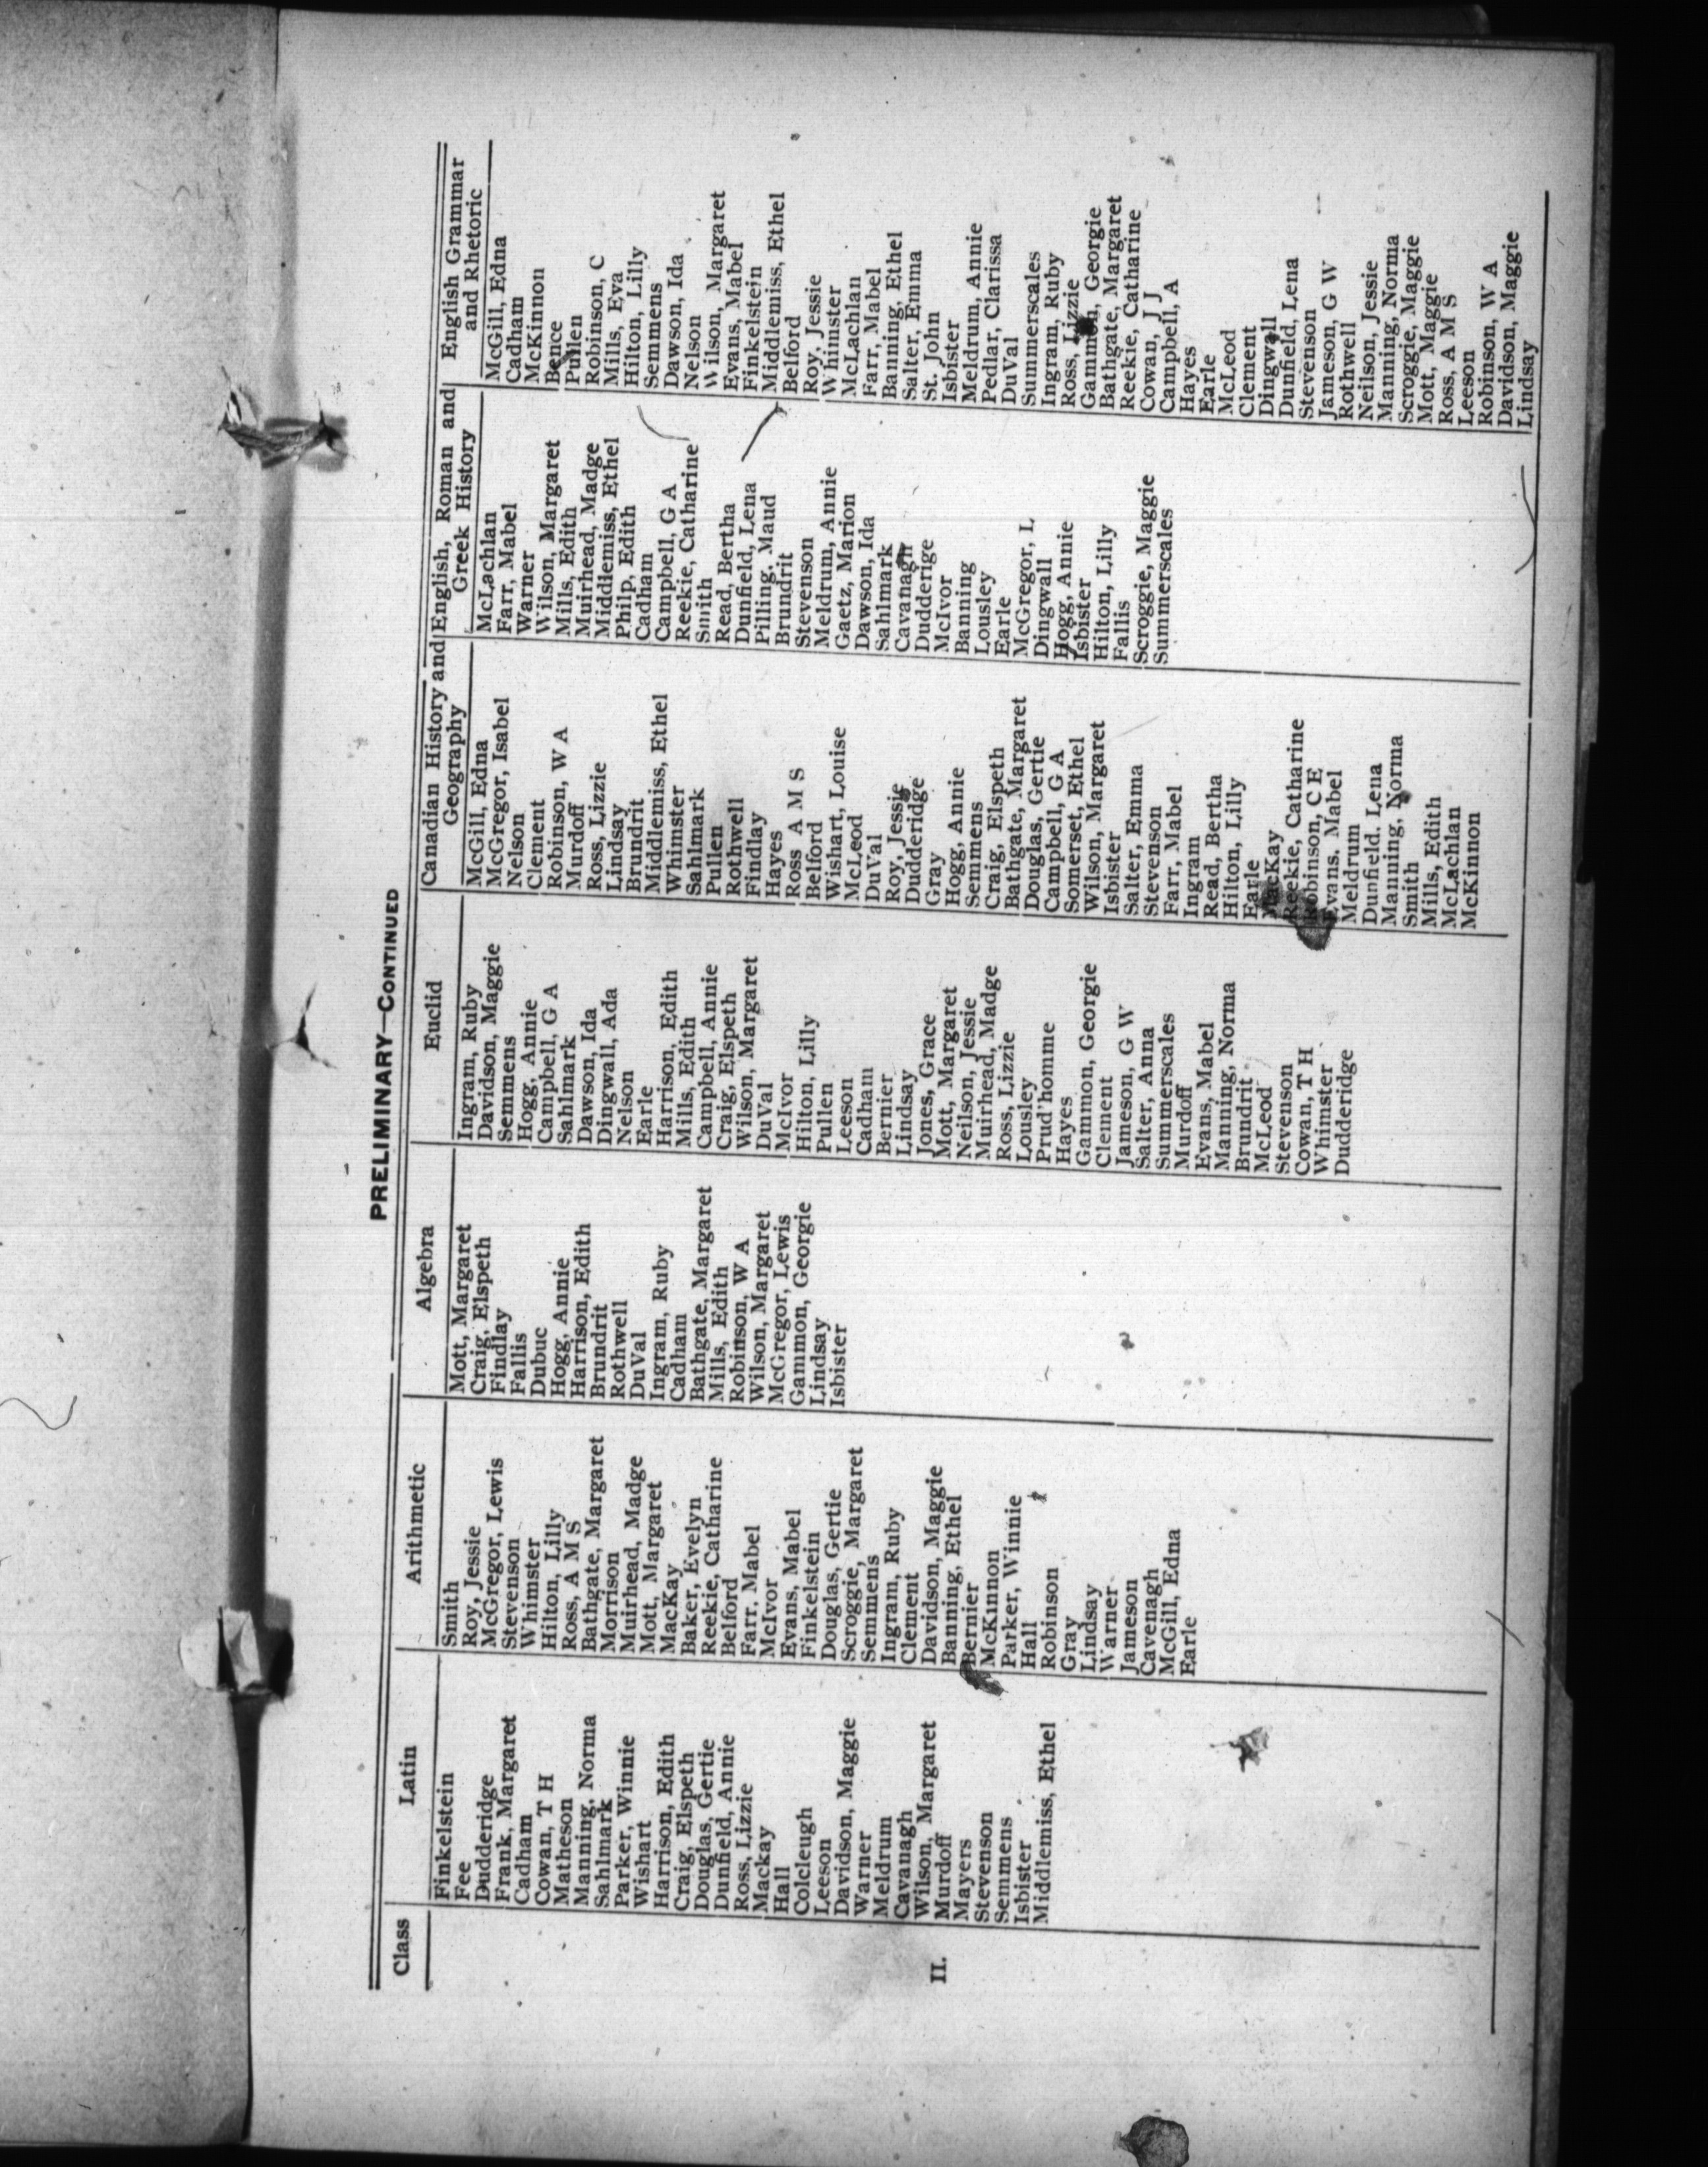 PRELIMINARY—CONTINUED
Class
II.
Latin
Finkelstein
Fee
Dudderidge
Frank, Margaret
Cadham
Cowan, T H
Matheson
Manning, Norma
Sahlmark
Parker, Winnie
Wishart
Harrison, Edith
Craig, Elspeth
Douglas, Gertie
Dunfield, Annie
Ross, Lizzie
Mackay
Hall
Colcleugh
Leeson
Davidson, Maggie
Warner
Meldrum
Cavanagh
Wilson, Margaret
Murdoff
Mayers
Stevenson
Semmens
Isbister
Middlemiss, Ethel
Arithmetic
Smith
Roy, Jessie
McGregor, Lewis
Stevenson
Whimster
Hilton, Lilly
Ross, A M S
Bathgate, Margaret
Morrison
Muirhead, Madge
Mott, Margaret
MacKay
Baker, Evelyn
Reekie, Catharine
Belford
Farr, Mabel
McIvor
Evans, Mabel
Finkelstein
Douglas, Gertie
Scroggie, Margaret
Semmens
Ingram, Ruby
Clement
Davidson, Maggie
Banning, Ethel
Bernier
McKinnon
Parker, Winnie
Hall
Robinson
Gray
Lindsay
Warner
Jameson
Cavenagh
McGill, Edna
Earle
Algebra
Mott, Margaret
Craig, Elspeth
Findlay
Fallis
Dubuc
Hogg, Annie
Harrison, Edith
Brundrit
Rothwell
DuVal
Ingram, Ruby
Cadham
Bathgate, Margaret
Mills, Edith
Robinson, W A
Wilson, Margaret
McGregor, Lewis
Gammon, Georgie
Lindsay
Isbister
Euclid
Ingram, Ruby
Davidson, Maggie
Semmens
Hogg, Annie
Campbell, G A
Sahlmark
Dawson, Ida
Dingwall, Ada
Nelson
Earle
Harrison, Edith
Mills, Edith
Campbell, Annie
Craig, Elspeth
Wilson, Margaret
DuVal
McIvor
Hilton, Lilly
Pullen
Leeson
Cadham
Bernier
Lindsay
Jones, Grace
Mott, Margaret
Neilson, Jessie
Muirhead, Madge
Ross, Lizzie
Lousley
Prud'homme
Hayes
Gammon, Georgie
Clement
Jameson, G W
Salter, Anna
Summerscales
Murdoff
Evans, Mabel
Manning, Norma
Brundrit
McLeod
Stevenson
Cowan, T H
Whimster
Dudderidge
Canadian History and
Geography
McGill, Edna
McGregor, Isabel
Nelson
Clement
Robinson, W A
Murdoff
Ross, Lizzie
Lindsay
Brundrit
Middlemiss, Ethel
Whimster
Sahlmark
Pullen
Rothwell
Findlay
Hayes
Ross A M S
Belford
Wishart, Louise
McLeod
DuVal
Roy, Jessie
Dudderidge
Gray
Hogg, Annie
Semmens
Craig, Elspeth
Bathgate, Margaret
Douglas, Gertie
Campbell, G A
Somerset, Ethel
Wilson, Margaret
Isbister
Salter, Emma
Stevenson
Farr, Mabel
Ingram
Read, Bertha
Hilton, Lilly
Earle
MacKay
Reekie, Catharine
Robinson, C E
Evans. Mabel
Meldrum
Dunfield. Lena
Manning, Norma
Smith
Mills, Edith
McLachlan
McKinnon
English, Roman and
Greek History
McLachlan
Farr, Mabel
Warner
Wilson, Margaret
Mills, Edith
Muirhead, Madge
Middlemiss, Ethel
Philp, Edith
Cadham
Campbell, G A
Reekie, Catharine
Smith
Read, Bertha
Dunfield, Lena
Pilling. Maud
Brundrit
Stevenson
Meldrum, Annie
Gaetz, Marion
Dawson, Ida
Sahlmark
Cavanagh
Dudderige
McIvor
Banning
Lousley
Earle
McGregor, L
Dingwall
Hogg, Annie
Isbister
Hilton, Lilly
Fallis
Scroggie, Maggie
Summerscales
English Grammar
and Rhetoric
McGill, Edna
Cadham
McKinnon
Bence
Pullen
Robinson, C
Mills, Eva
Hilton, Lilly
Semmens
Dawson, Ida
Nelson
Wilson, Margaret
Evans, Mabel
Finkelstein
Middlemiss, Ethel
Belford
Roy, Jessie
Whimster
McLachlan
Farr, Mabel
Banning, Ethel
Salter, Emma
St. John
Isbister
Meldrum, Annie
Pedlar, Clarissa
DuVal
Summerscales
Ingram, Ruby
Ross, Lizzie
Gammon, Georgie
Bathgate, Margaret
Reekie, Catharine
Cowan, J J
Campbell, A
Hayes
Earle
McLeod
Clement
Dingwall
Dunfield, Lena
Stevenson
Jameson, G W
Rothwell
Neilson, Jessie
Manning, Norma
Scroggie, Maggie
Mott, Maggie
Ross, A M S
Leeson
Robinson, W A
Davidson, Maggie
Lindsay